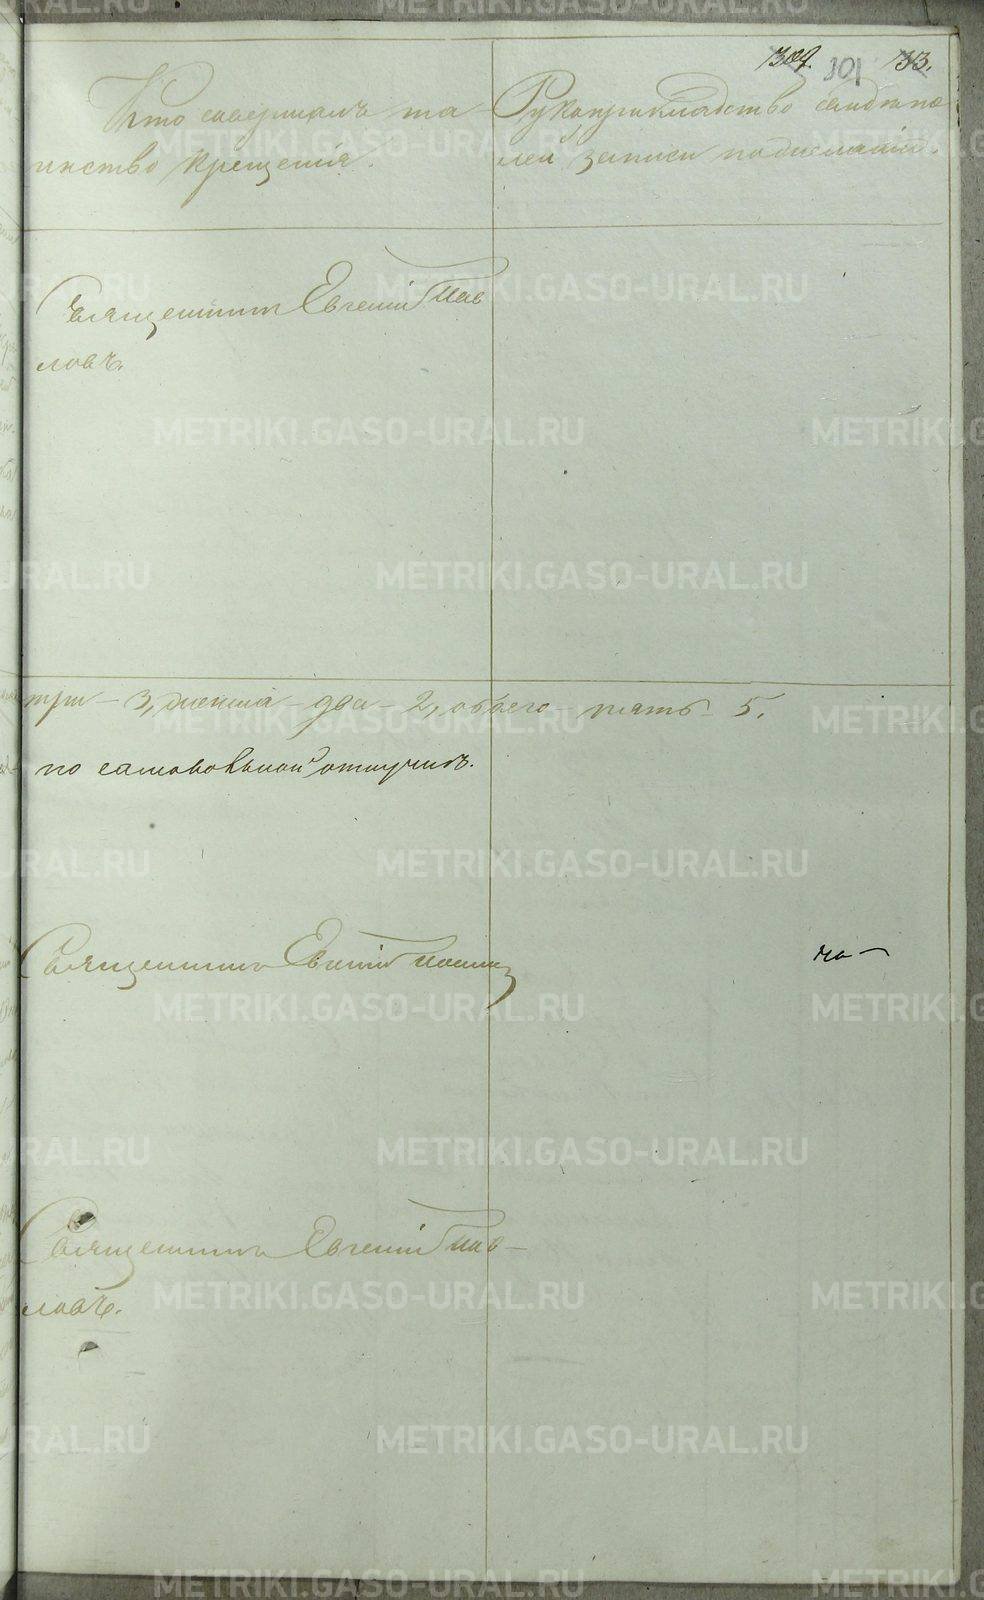 309. 301 133.
Кто совершалъ та-
инство крещенія.
Рукоприкладство свидѣте-
лей записи по желанію.
Священникъ Евгеній Пав
ловъ.
три - 3, женска - два - 2, обоего - пять - 5.
по самовольной отлучкѣ.
Священникъ Евгеній
Священникъ Евгеній Пав-
ловъ.
METRIKI.GASO-URAL.RU